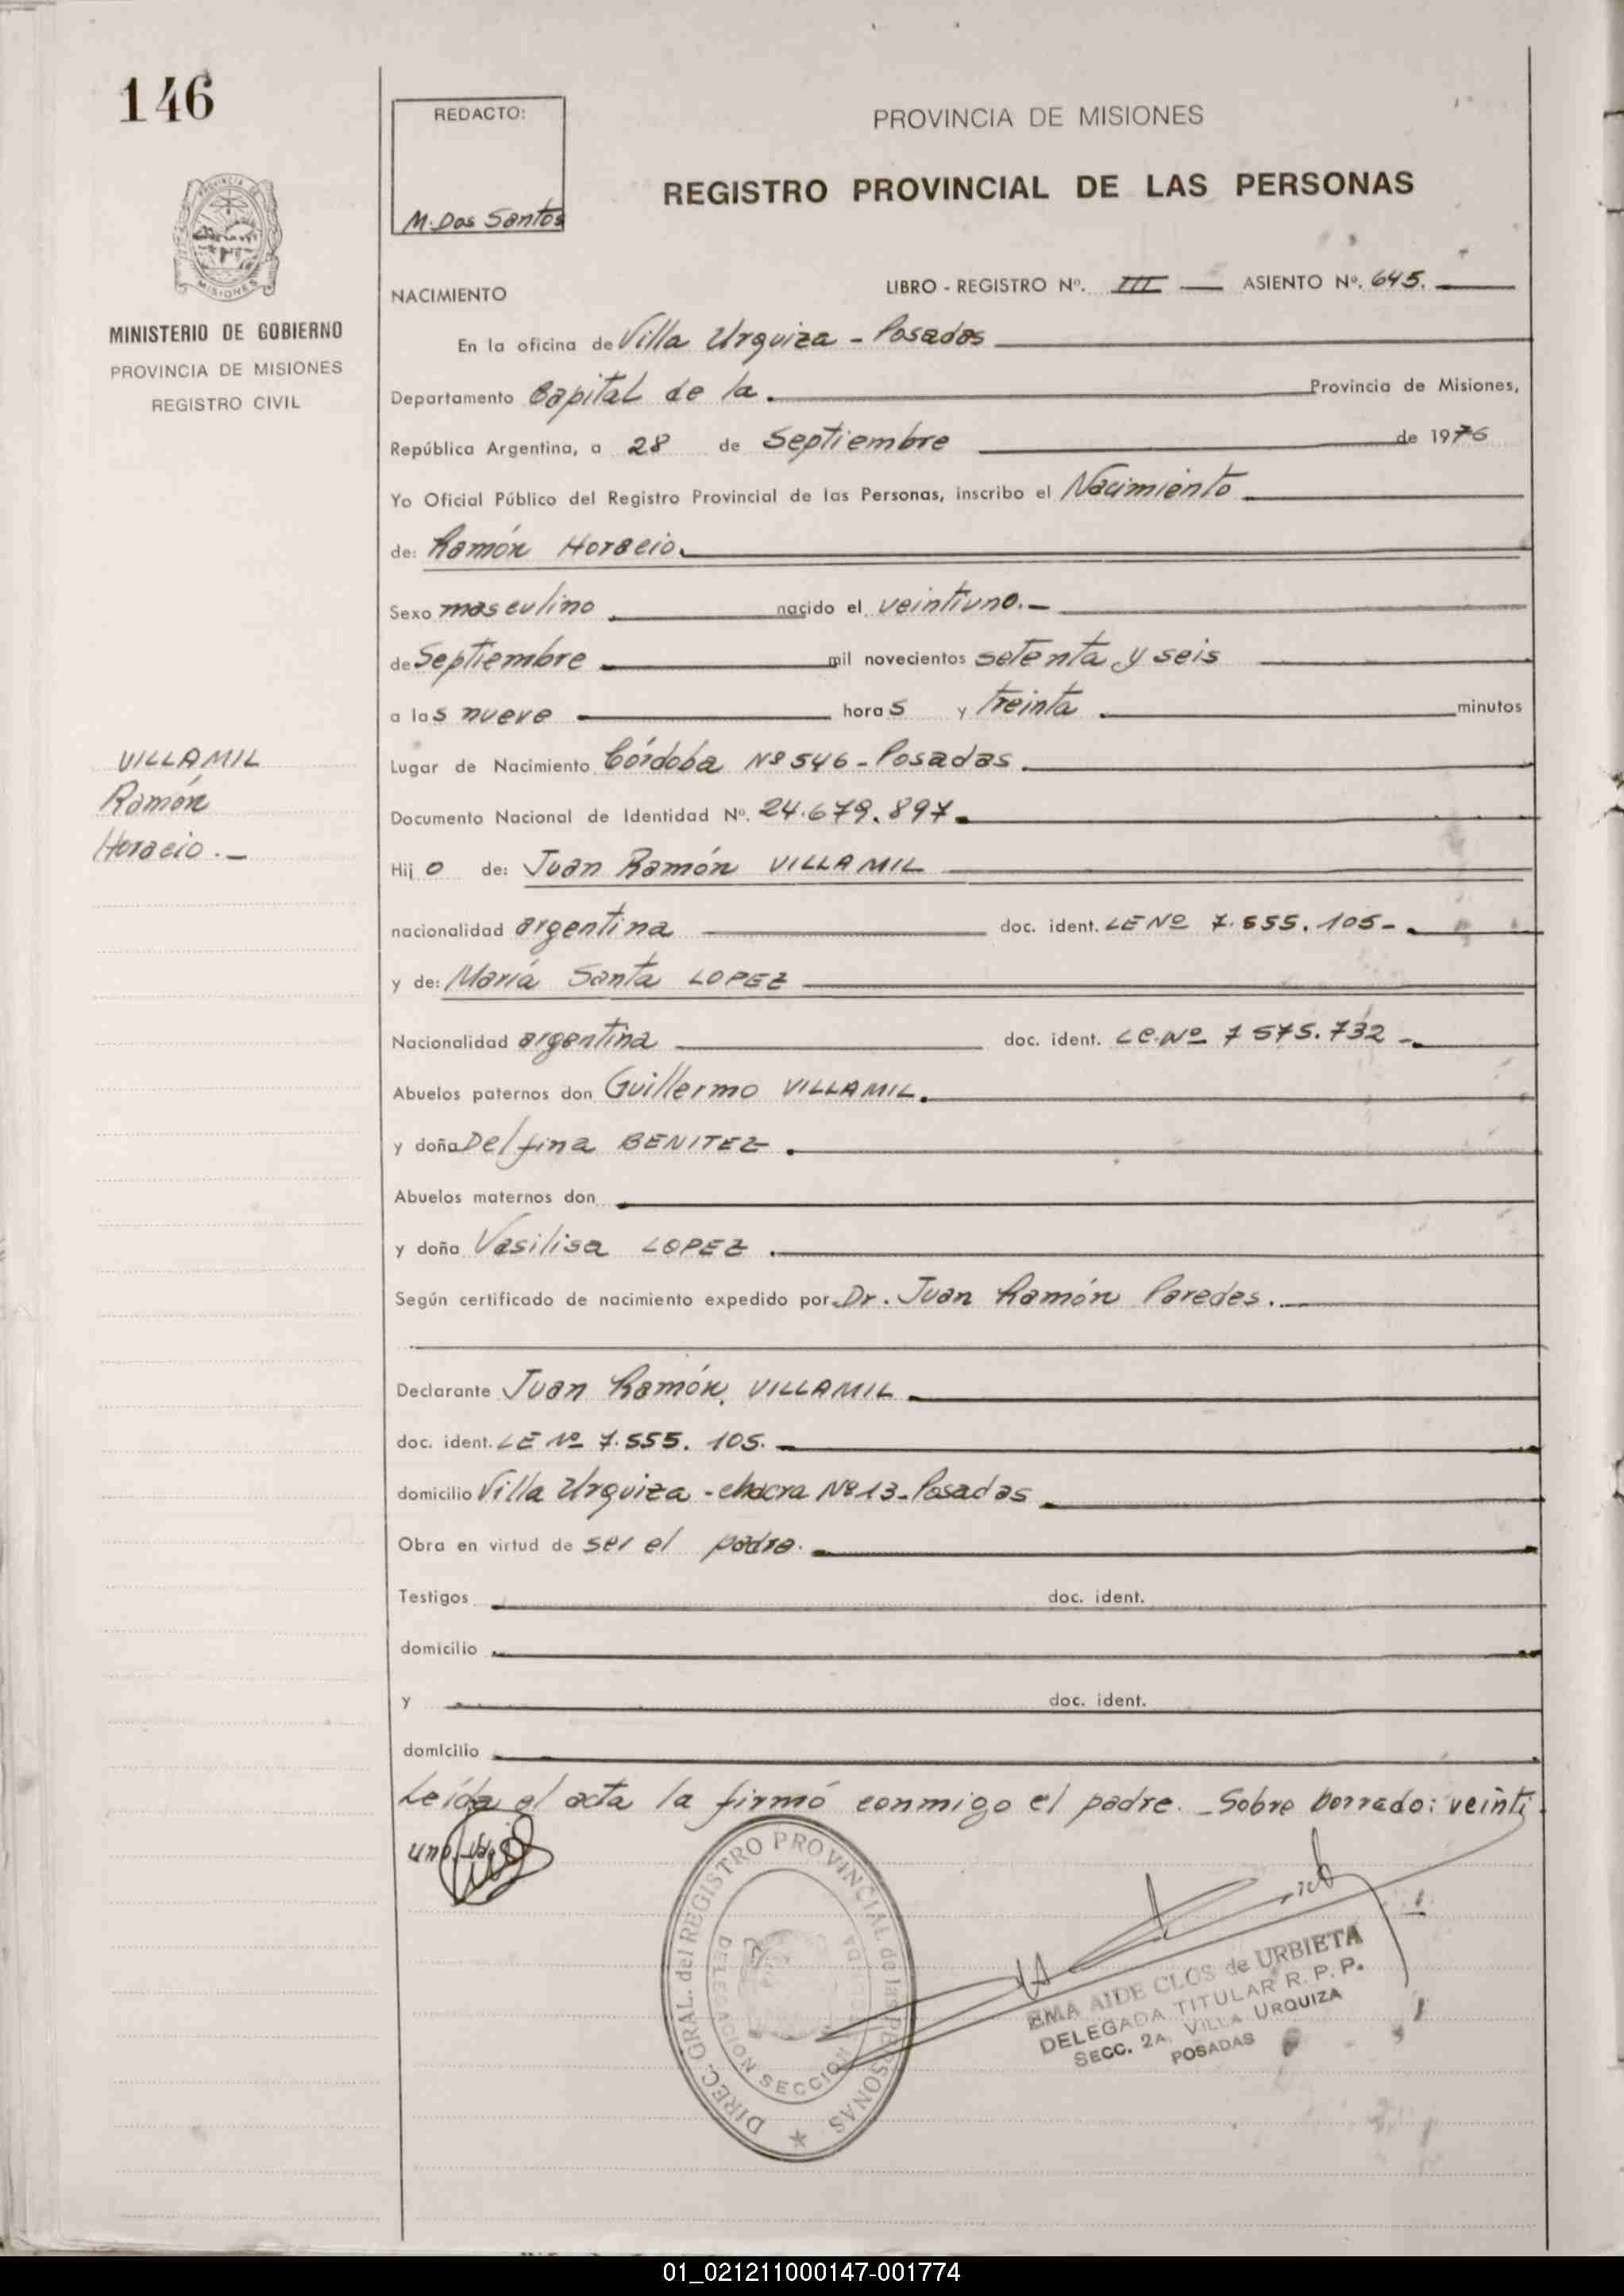 146
REDACTO:
M. Dos Santos
PROVINCIA DE MISIONES
REGISTRO PROVINCIAL DE LAS PERSONAS
PROVINCIA DE
MISIONES
MINISTERIO DE GOBIERNO
PROVINCIA DE MISIONES
REGISTRO CIVIL
NACIMIENTO
LIBRO - REGISTRO Nº. III — ASIENTO Nº. 645.
En la oficina de Villa Urquiza - Posadas
Departamento Capital de la. Provincia de Misiones,
República Argentina, a 28 de Septiembre de 1976
Yo Oficial Público del Registro Provincial de las Personas, inscribo el Nacimiento
de: Ramón Horacio.
Sexo masculino nacido el veintiuno.-
de Septiembre mil novecientos setenta y seis
a las nueve horas y treinta minutos
VILLAMIL
Ramón
Horacio.-
Lugar de Nacimiento Córdoba Nº 546 - Posadas.
Documento Nacional de Identidad Nº. 24.679.897.
Hijo de: Juan Ramón VILLAMIL
nacionalidad argentina doc. ident. LE Nº 7.555.105-.
y de: María Santa LOPEZ
Nacionalidad argentina doc. ident. LC. Nº 7 575.732-.
Abuelos paternos don Guillermo VILLAMIL.
y doña Delfina BENITEZ.
Abuelos maternos don
y doña Vasilisa LOPEZ.
Según certificado de nacimiento expedido por Dr. Juan Ramón Paredes.
Declarante Juan Ramón VILLAMIL
doc. ident. LE Nº 7.555.105.-
domicilio Villa Urquiza - chacra Nº 13 - Posadas
Obra en virtud de ser el padre.
Testigos doc. ident.
domicilio
y doc. ident.
domicilio
Leída el acta la firmó conmigo el padre. - Sobre borrado: veinti
uno
DIREC. GRAL. del REGISTRO PROVINCIAL de las PERSONAS
SECCION
EMA AIDE CLOS de URBIETA
DELEGADA TITULAR R. P. P.
SECC. 2A. VILLA URQUIZA
POSADAS
01_021211000147-001774